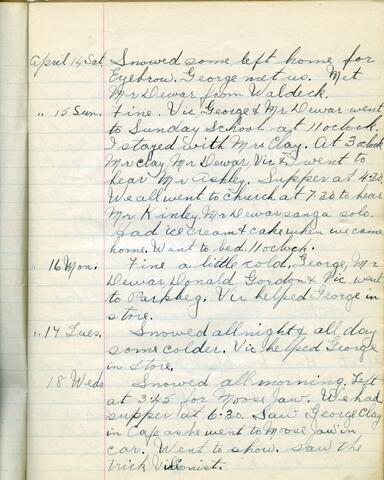 April 14 Sat. Snowed some left home for
Eyebrow. George met us. Met
Mr Dewar from Waldeck.
" 15 Sun. Fine. Vic George & Mr Dewar went
to Sunday School at 11 oclock.
I stayed with Mrs Clay. At 3 oclock
Mr Clay Mr Dewar Vic & I went to
hear Mr Ashley. Supper at 4:30.
We all went to church at 7:30 to hear
Mr Kinley. Mr Dewar sang a solo.
Had ice cream & cake when we came
home. Went to bed. 11 oclock.
" 16 Mon. Fine a little cold. George, Mr
Dewar, Donald Gordon & Vic went
to Parkbeg. Vic helped George in
store.
" 17 Tues. Snowed all night & all day
some colder. Vic helped George
in Store.
18 Weds Snowed all morning. Left
at 3:45 for Moose Jaw. We had
supper at 6:30. Saw George Clay
in Cap as he went to Moose Jaw in
car. Went to show. Saw the
trick